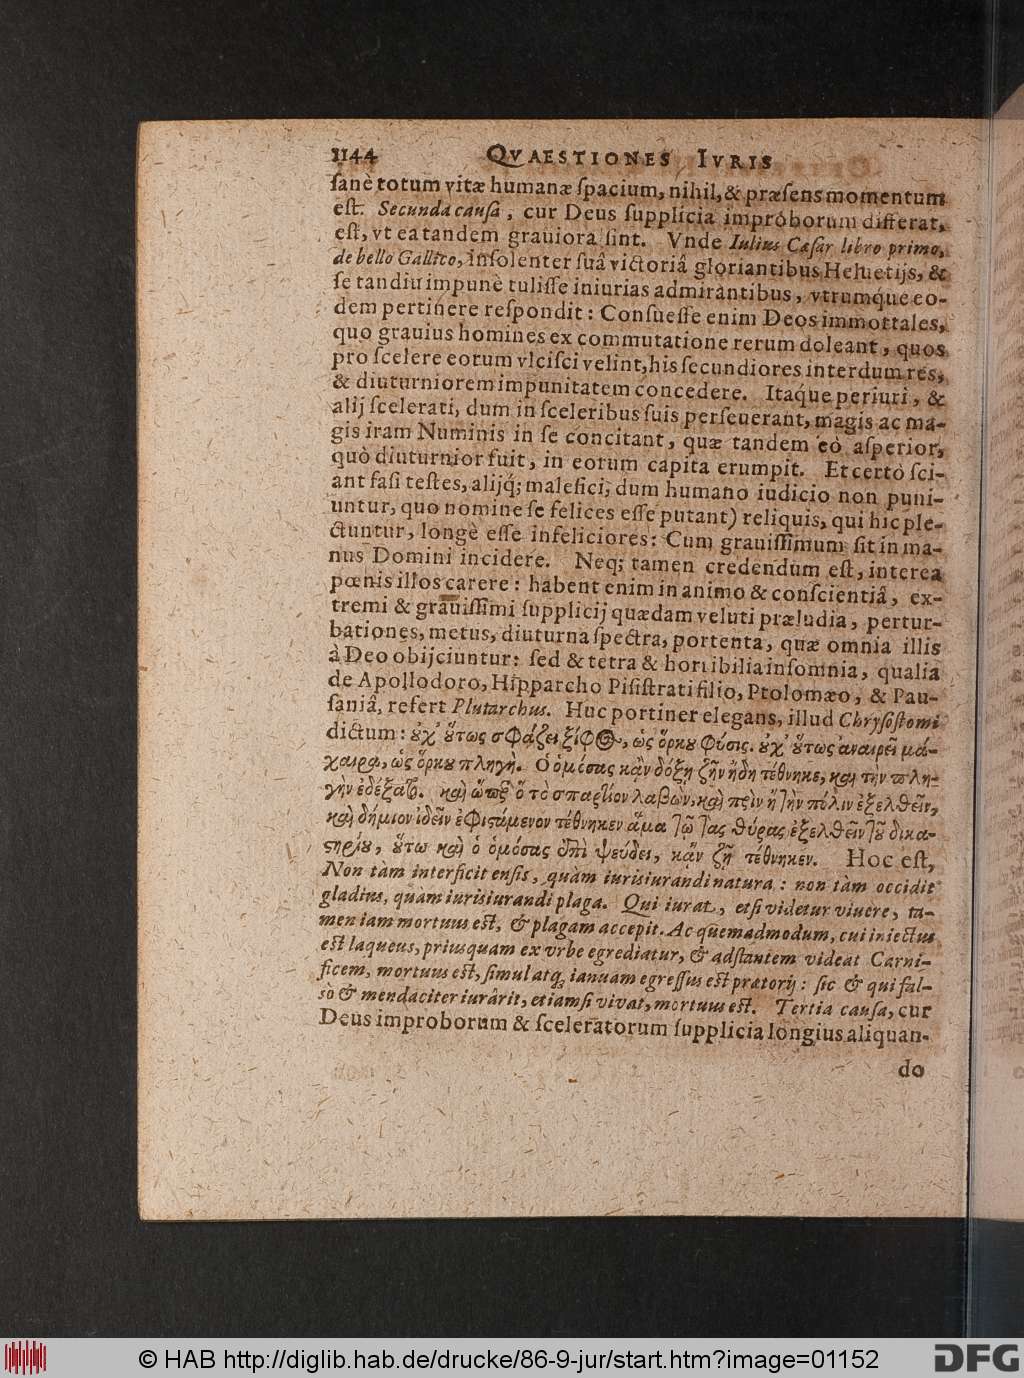 1144 QVAESTIONES IVRIS
ſanè totum vitæ humanæ ſpacium, nihil, & præſens momentum
eſt. Secunda cauſa, cur Deus ſupplicia improborum differat,
eſt, vt ea tandem grauiora ſint. Vnde Iulius Cæſar libro primo,
de bello Gallico, inſolenter ſuâ victoriâ gloriantibus Heluetijs, &
ſe tandiu impunè tuliſſe iniurias admirantibus, vtrumq́ue eo-
dem pertinere reſpondit: Conſueſſe enim Deos immortales,
quo grauius homines ex commutatione rerum doleant, quos
pro ſcelere eorum vlciſci velint, his ſecundiores interdum res,
& diuturniorem impunitatem concedere. Itaq́ue periuri, &
alij ſcelerati, dum in ſceleribus ſuis perſeuerant, magis ac ma-
gis iram Numinis in ſe concitant, quæ tandem eò aſperior,
quò diuturnior fuit, in eorum capita erumpit. Et certò ſci-
ant faſi teſtes, alijq́; malefici; dum humano iudicio non puni-
untur, quo nomine ſe felices eſſe putant) reliquis, qui hic ple-
ctuntur, longè eſſe infeliciores: Cum grauiſſimum ſit in ma-
nus Domini incidere. Neq; tamen credendum eſt, interea
pœnis illos carere: habent enim in animo & conſcientiâ, ex-
tremi & grauiſſimi ſupplicij quædam veluti præludia, pertur-
bationes, metus, diuturna ſpectra, portenta, quæ omnia illis
à Deo obijciuntur: ſed & tetra & horribilia inſomnia, qualia
de Apollodoro, Hipparcho Piſiſtrati filio, Ptolomæo, & Pau-
ſaniâ, refert Plutarchus. Huc portiner elegans, illud Chryſoſtomi
dictum: ȣ̓χ' ȣ̔́τως σφάζει ξίφος, ὡς ὅρκȣ φύσις. ȣ̓χ' ȣ̔́τως ἀναιρεῖ μά-
χαιρα, ὡς ὅρκȣ πληγή. Ὁ ὁμόσας κἂν δόξῃ ζῆν ἤδη τέθνηκε, καὶ τὴν πλη-
γὴν ἐδέξατο. καὶ ὥσπερ ὅ τὸ σπαρτίον λαβὼν, καὶ πρὶν ἢ τὴν πόλιν ἐξελθεῖν,
καὶ δήμιον ἰδεῖν ἐφιςάμενον τέθνηκεν ἅμα τῷ τας θύρας ἐξελθεῖν τȣ͂ δικα-
ςηρίȣ, ȣ̔́τω καὶ ὁ ὁμόσας ἐπὶ ψεύδει, κἂν ζῇ τέθνηκεν. Hoc eſt,
Non tàm interficit enſis, quàm iurisiurandi natura: non tàm occidit
gladius, quàm iurisiurandi plaga. Qui iurat, etſi videtur viuere, ta-
men iam mortuus eſt, & plagam accepit. Ac quemadmodum, cui iniectus
eſt laqueus, priusquam ex vrbe egrediatur, & adſtantem videat Carni-
ficem, mortuus eſt, ſimul atq́; ianuam egreſſus eſt pratorij: ſic & qui fal-
sò & mendaciter iurârit, etiamſi vivat, mortuus eſt. Tertia cauſa, cur
Deus improborum & ſceleratorum ſupplicia longius aliquan-
do
© HAB http://diglib.hab.de/drucke/86-9-jur/start.htm?image=01152
DFG